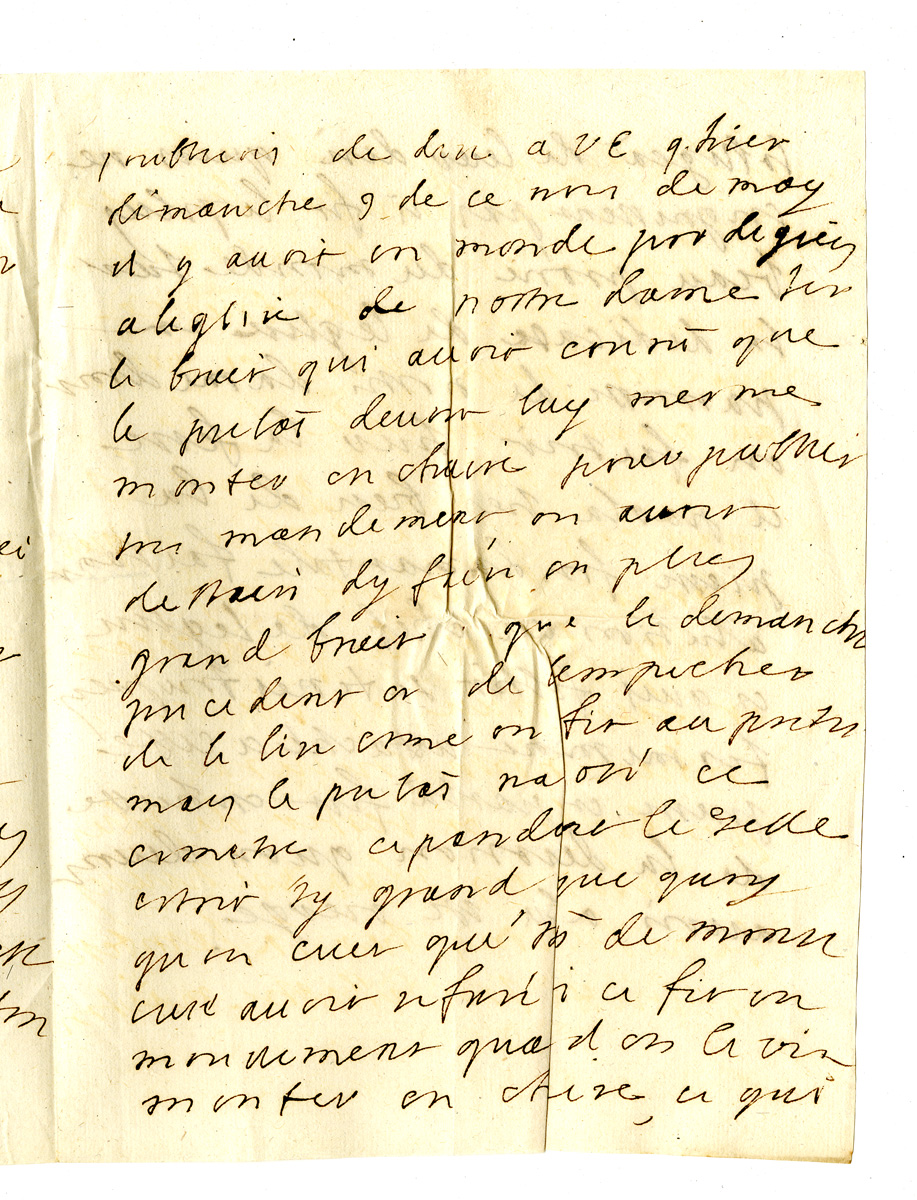 de dire a VE q. hier
dimanche 9 de ce mois de may
il y auoit un monde prodigieus
a leglise de nostre dame sur
le bruit qui auoit courut que
le prelat deuoit luy mesme
monter en chaire pour publier
son mandement on auoit
dessein dy faire un plus
grand bruit que le dimanche
precedent et de lempecher
de le lire come on fit au prestre
mais le prelat na osé ce
cometre cependant le zelle
estoit sy grand que quoy
quon eut que de monsr
curé auoit refusé i ce fit un
mouuement quand on le vit
monter en chere, ce qui